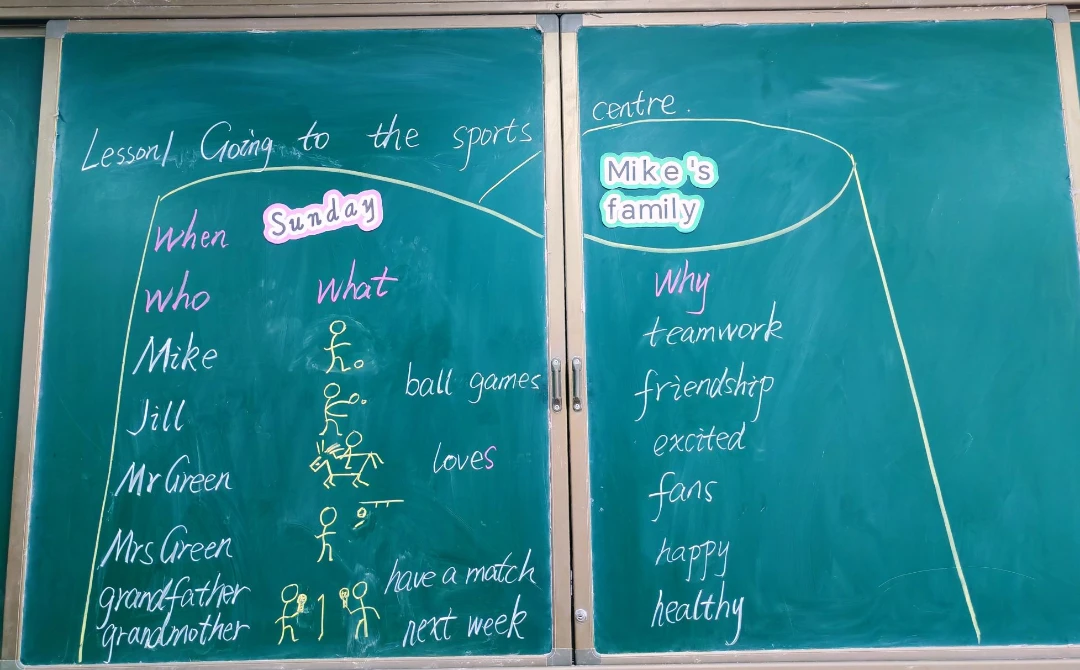 Lesson1 Going to the sports centre.
Mike's
family
When Sunday
Who What Why
Mike teamwork
ball games friendship
Jill excited
loves
Mr Green fans
Mrs Green happy
have a match
grandfather healthy
grandmother next week